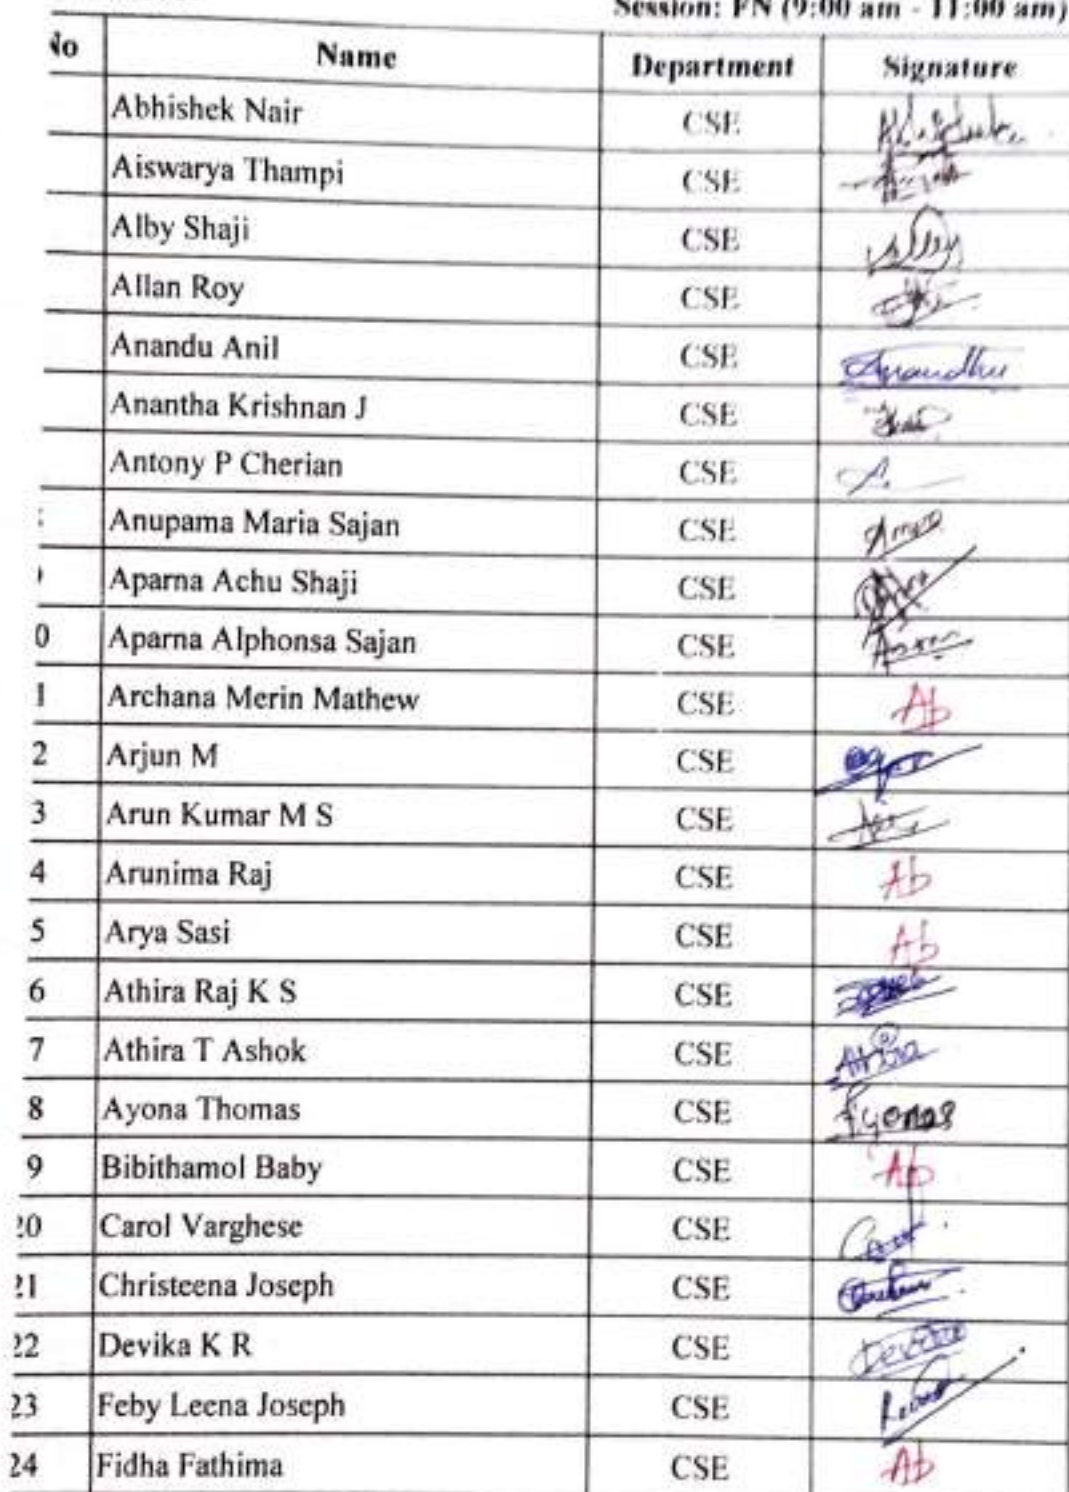 Session: FN (9:00 am - 11:00 am)
No Name Department Signature
Abhishek Nair CSE
Aiswarya Thampi CSE
Alby Shaji CSE
Allan Roy CSE
Anandu Anil CSE Anandhu
Anantha Krishnan J CSE
Antony P Cherian CSE
Anupama Maria Sajan CSE
Aparna Achu Shaji CSE
0 Aparna Alphonsa Sajan CSE
1 Archana Merin Mathew CSE Ab
2 Arjun M CSE
3 Arun Kumar M S CSE
4 Arunima Raj CSE Ab
5 Arya Sasi CSE Ab
6 Athira Raj K S CSE
7 Athira T Ashok CSE
8 Ayona Thomas CSE
9 Bibithamol Baby CSE Ab
20 Carol Varghese CSE
21 Christeena Joseph CSE
22 Devika K R CSE
23 Feby Leena Joseph CSE
24 Fidha Fathima CSE Ab